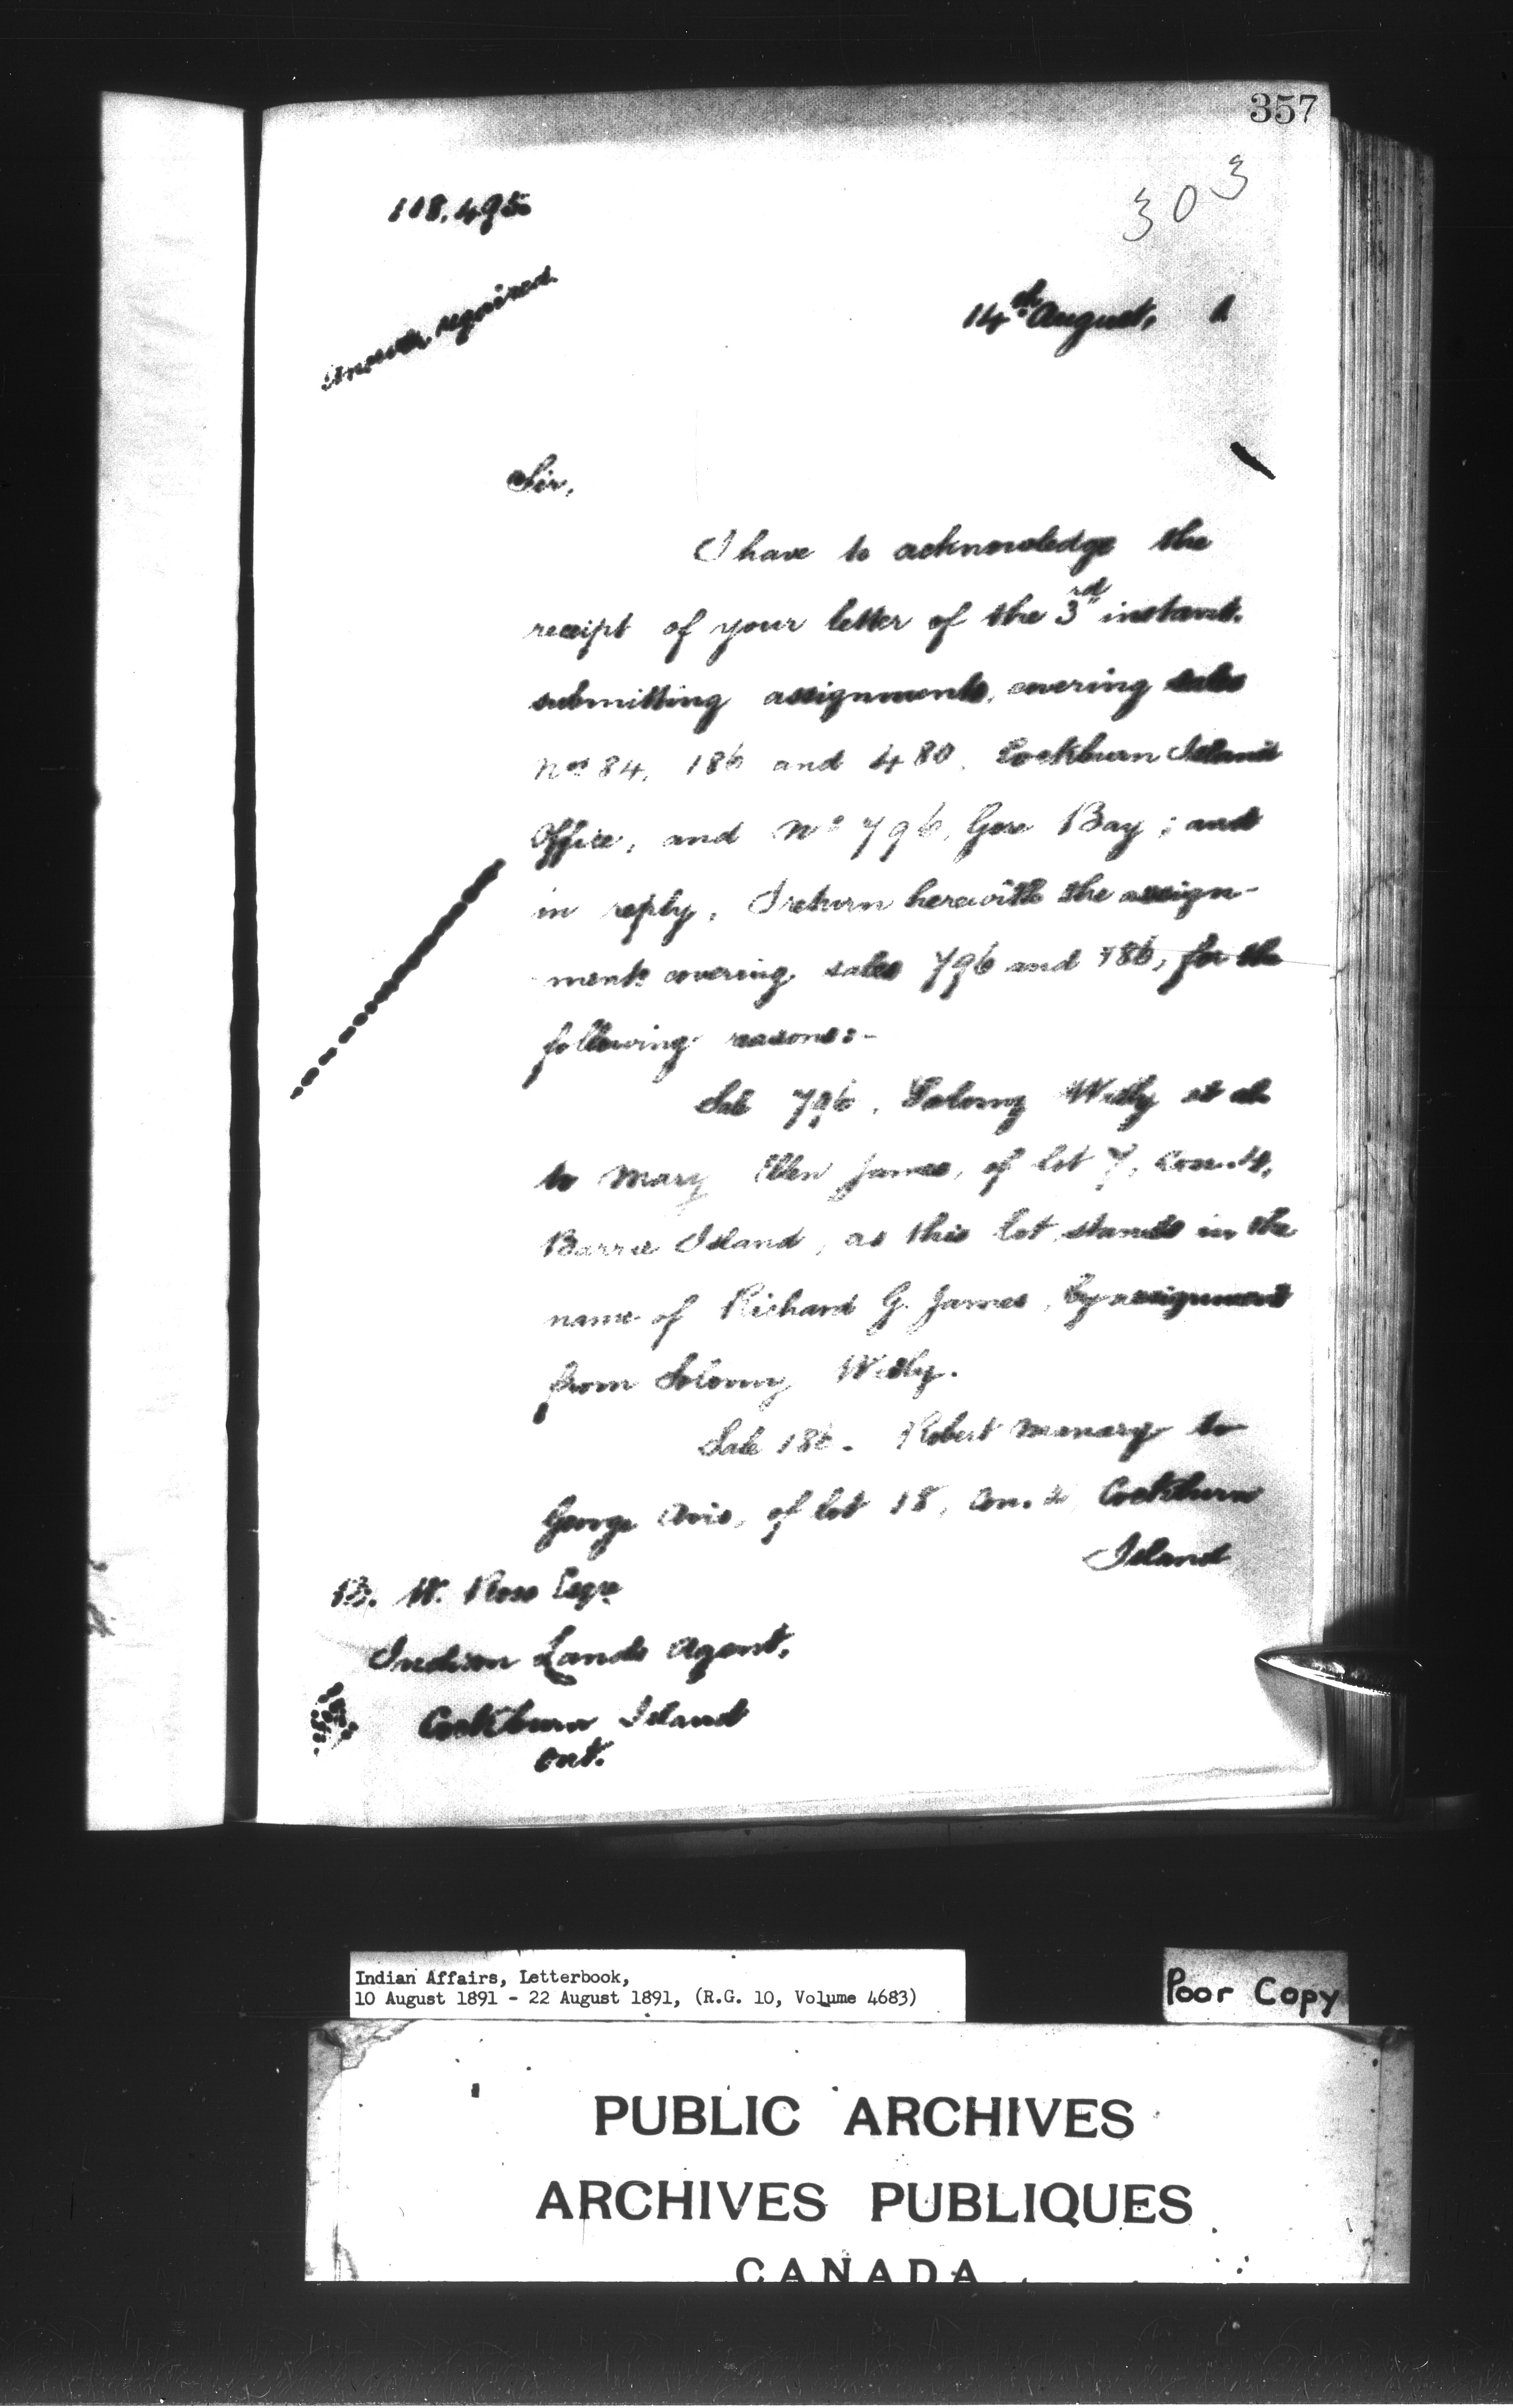 357
303
118.495
required.
14th August, 1
Sir,
I have to acknowledge the
receipt of your letter of the 3rd instant,
submitting assignments, covering sales
Nos 84, 186 and 480, Cockburn Island
Office, and No 796, Gore Bay; and
in reply, I return herewith the assign-
ments covering sales 796 and 186, for the
following reasons:-
Sale 796, Solomy et al
to Mary Ellen James, of lot 7, Con. 4,
Barrie Island, as this lot stands in the
name of Richard G. James, by assignment
from Solomy
Sale 186. Robert Menary to
George Avis, of lot 18, Con. 2 Cockburn
Island
B. W. Ross Esqre
Indian Lands Agent,
Cockburn Island
Ont.
Indian Affairs, Letterbook,
10 August 1891 - 22 August 1891, (R.G. 10, Volume 4683)
Poor Copy
PUBLIC ARCHIVES
ARCHIVES PUBLIQUES
CANADA